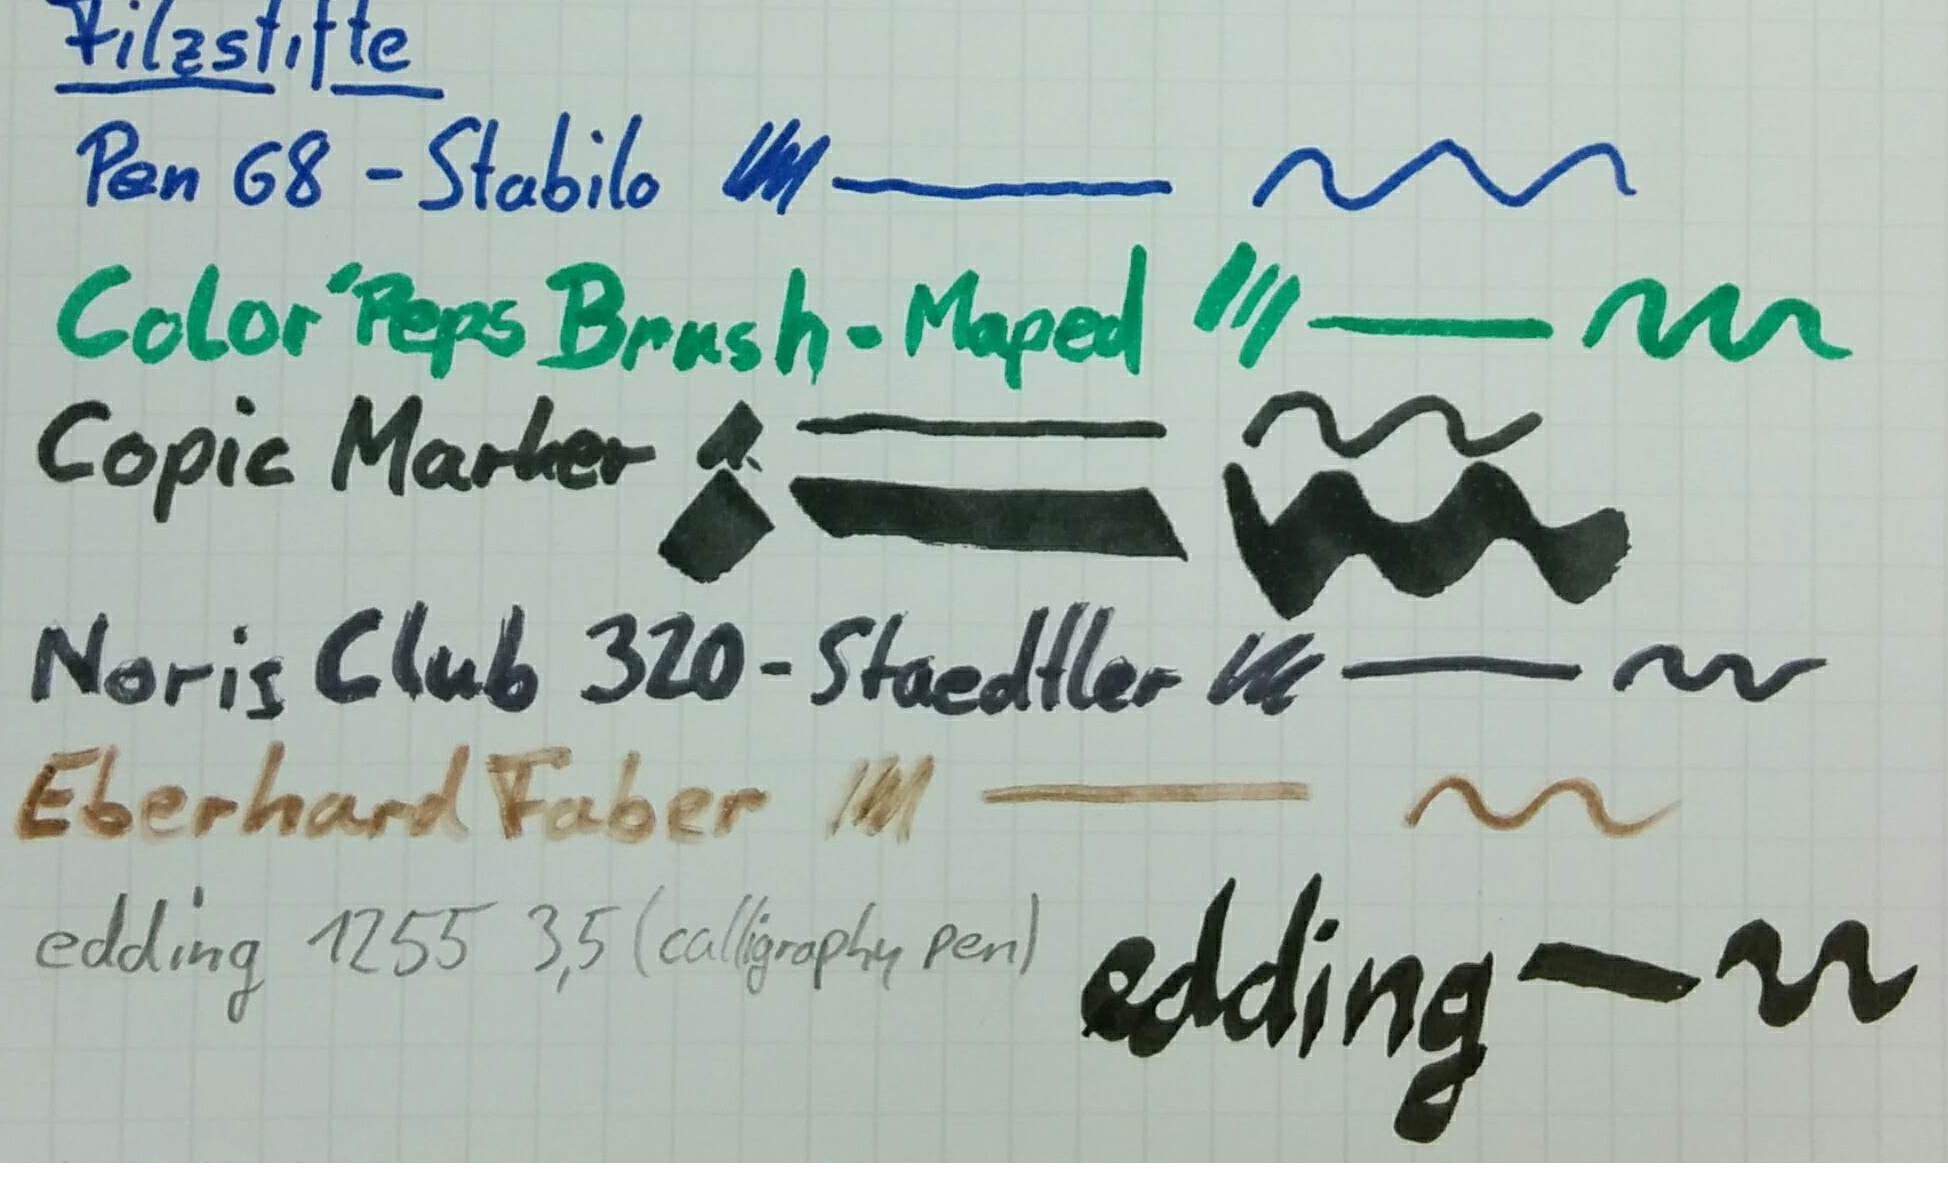 Filzstifte
Pen 68 - Stabilo
Color'Peps Brush - Maped
Copic Marker
Noris Club 320 - Staedtler
Eberhard Faber
edding 1255 3,5 (calligraphy pen) edding